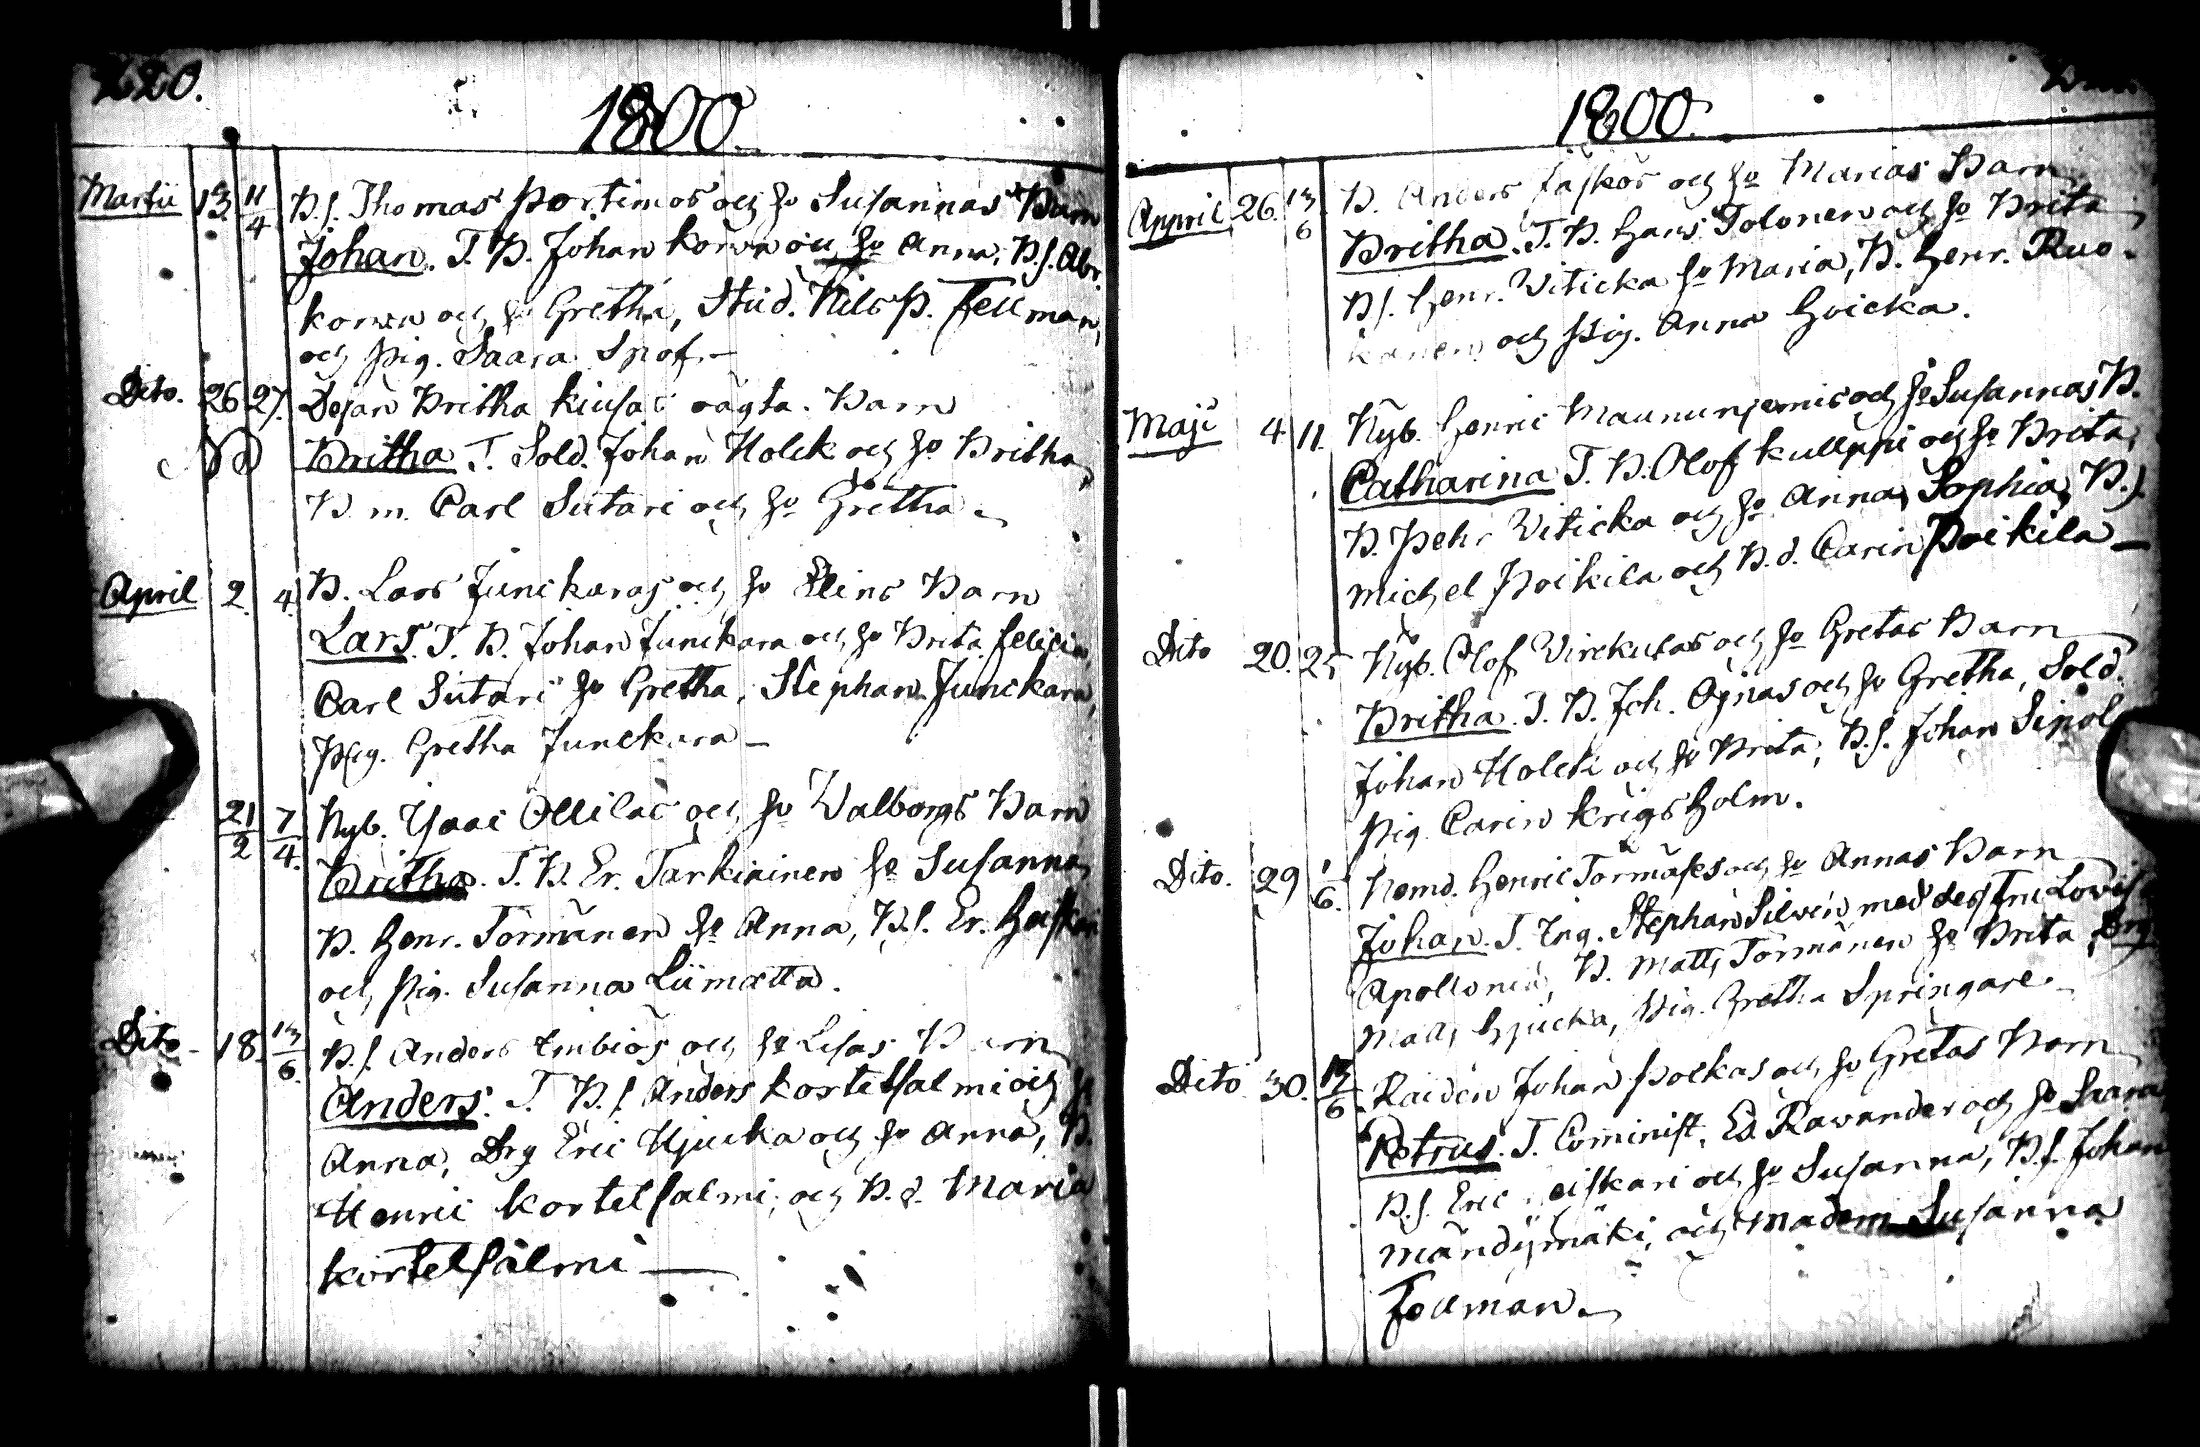 220.
1800
Martii 13 11/4 B.s. Thomas Portimos och H:o Susannas Barn
Johan. T. B. Johan Korva och H:o Anna, B.s. Abr.
Korva och H:o Gretha, Stud. Nils P. Fellman,
och Pig. Saara Snof.—
Dito. 26 27. Dejan Britha Kiusas oägta. Barn
Britha T. Sold. Johan Holck och H:o Britha,
B. m. Carl Sutari och H:o Gretha.—
April 2. 4. B. Lars Junckaras och H:o Elins Barn
Lars. T. B. Johan Junckara och H:o Brita
Carl Sutari H:o Gretha, Stephan Junckara,
Pig. Gretha Junckara—
21/2 7/4. Nyb. Isaac Ollilas och H:o Walborgs Barn
Britha. T. B. Er. Tarkiainen H:o Susanna,
B. Henr. Törmänen H:o Anna, B.s. Er.
och Pig. Susanna Liimatta.
Dito 18. 13/6. B.s. Anders Embiös och H:o Lisas Barn
Anders. T. B.s. Anders Kortelsalmi och H:o
Anna, Drg Eric Hjucka och H:o Anna, B.
Henric Kortelsalmi, och B. d. Maria
Kortelsalmi—
1800.
Appril 26. 13/6 B. Anders Jäskös och H:o Marias Barn
Britha. T. B. Hans Tolonen och H:o Brita,
B.s. Henr. Viticka H:o Maria, B. Henr. Ruo-
kanen och Pig. Anna Hvicka.
Maji 4 11. Nyb. Henric Maununiemis och H:o Susannas B.
Catharina T. B. Olof Kulppi och H:o Brita,
B. Pehr Viticka och H:o Anna Sophia, B.s.
Michel Poikila och B. d. Carin Poikila—
Dito 20. 25 Nyb. Olof Virckulas och H:o Gretas Barn
Britha. T. B. Joh. Ojnas och H:o Gretha, Sold.
Johan Holck och H:o Brita, B.s. Johan Sipol
Pig. Carin Krigsholm.
Dito. 29 1/6. Nemd. Henric Törmäses och H:o Annas Barn
Johan. T. Ing. Stephan Silvén med des Fru Lovisa
Apollonia, B. Matts Törmänen H:o Brita, Drg
Matts Hjucka, Pig. Gretha Springare.—
Dito 30. 13/6 Raiden Johan Pockas och H:o Gretas Barn
Petrus. T. Cominist. Ed. Ravander och H:o Saara
B.s. Eric Heiskari och H:o Susanna, B.s. Johan
Mändymäki, och Madem Susanna
Fellman.—